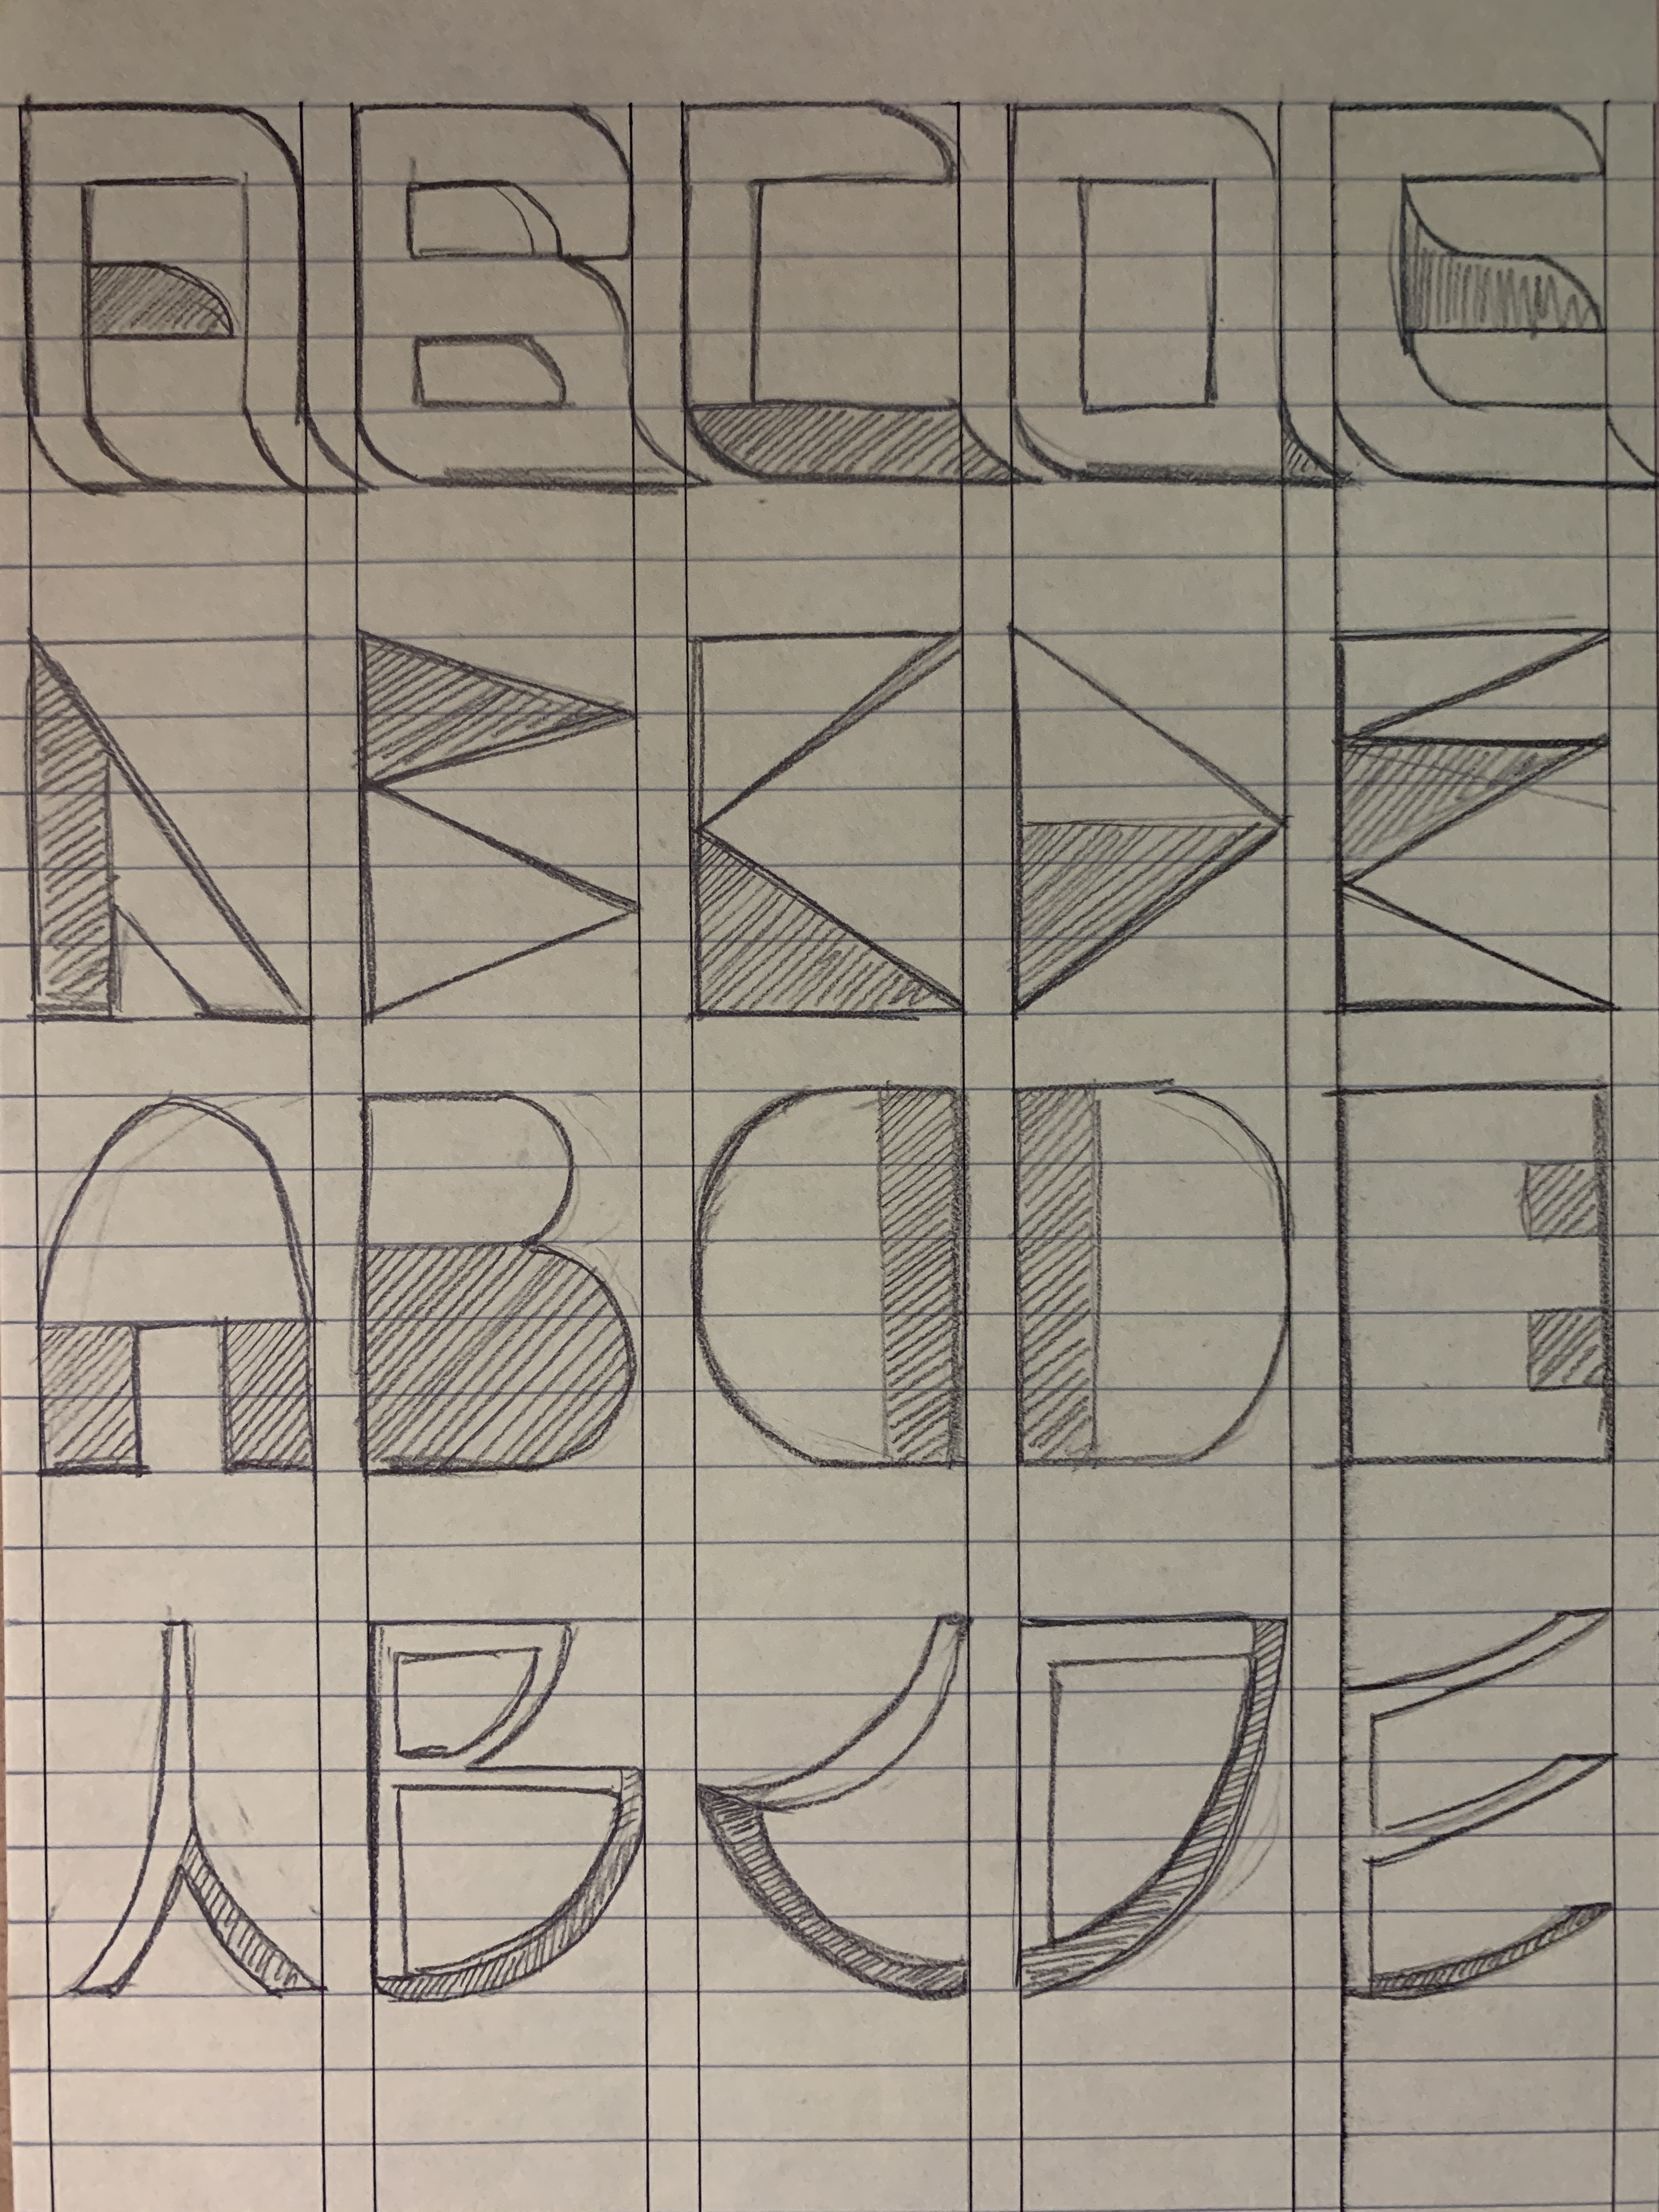 ABCDE
ABCDE
ABCDE
ABCDE